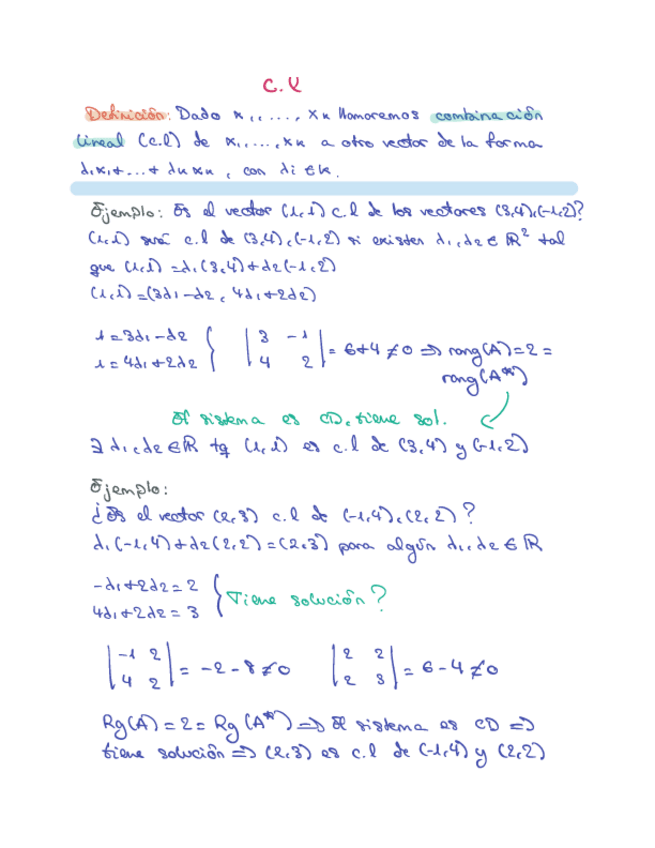 C.L
Definición: Dado x₁, ..., xₙ llamaremos combinación
lineal (c.l) de x₁, ..., xₙ a otro vector de la forma
α₁x₁+...+αₙxₙ, con αi ∈ K.
Ejemplo: Es el vector (1,1) c.l de los vectores (3,4),(-1,2)?
(1,1) será c.l de (3,4),(-1,2) si existen α₁,α₂ ∈ ℝ² tal
que (1,1) = α₁(3,4)+α₂(-1,2)
(1,1) = (3α₁-α₂, 4α₁+2α₂)
1=3α₁-α₂
1=4α₁+2α₂ { | 3 -1 | 4 2 | = 6+4 ≠ 0 ⇒ rang(A)=2=
rang(A*)
El sistema es CD, tiene sol.
∃ α₁,α₂ ∈ ℝ tq (1,1) es c.l de (3,4) y (-1,2)
Ejemplo:
¿Es el vector (2,3) c.l de (-1,4),(2,2)?
α₁(-1,4)+α₂(2,2)=(2,3) para algún α₁,α₂ ∈ ℝ
-α₁+2α₂=2
4α₁+2α₂=3 { Tiene solución?
| -1 2 | 4 2 | = -2-8 ≠ 0 | 2 2 | 2 3 | = 6-4 ≠ 0
Rg(A)=2=Rg(A*) ⇒ El sistema es CD ⇒
tiene solución ⇒ (2,3) es c.l de (-1,4) y (2,2)